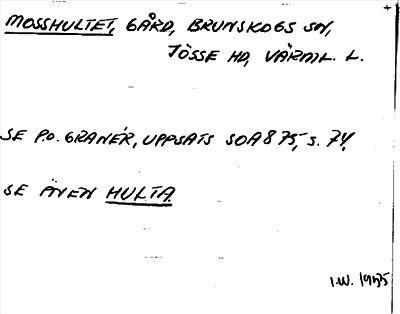 MOSSHULTET, GÅRD, BRUNSKOGS SN,
JÖSSE HD, VÄRML. L.
SE P.O. GRANÉR, UPPSATS SOA 875, S. 74,
SE ÄVEN HULTA.
I.W. 1955